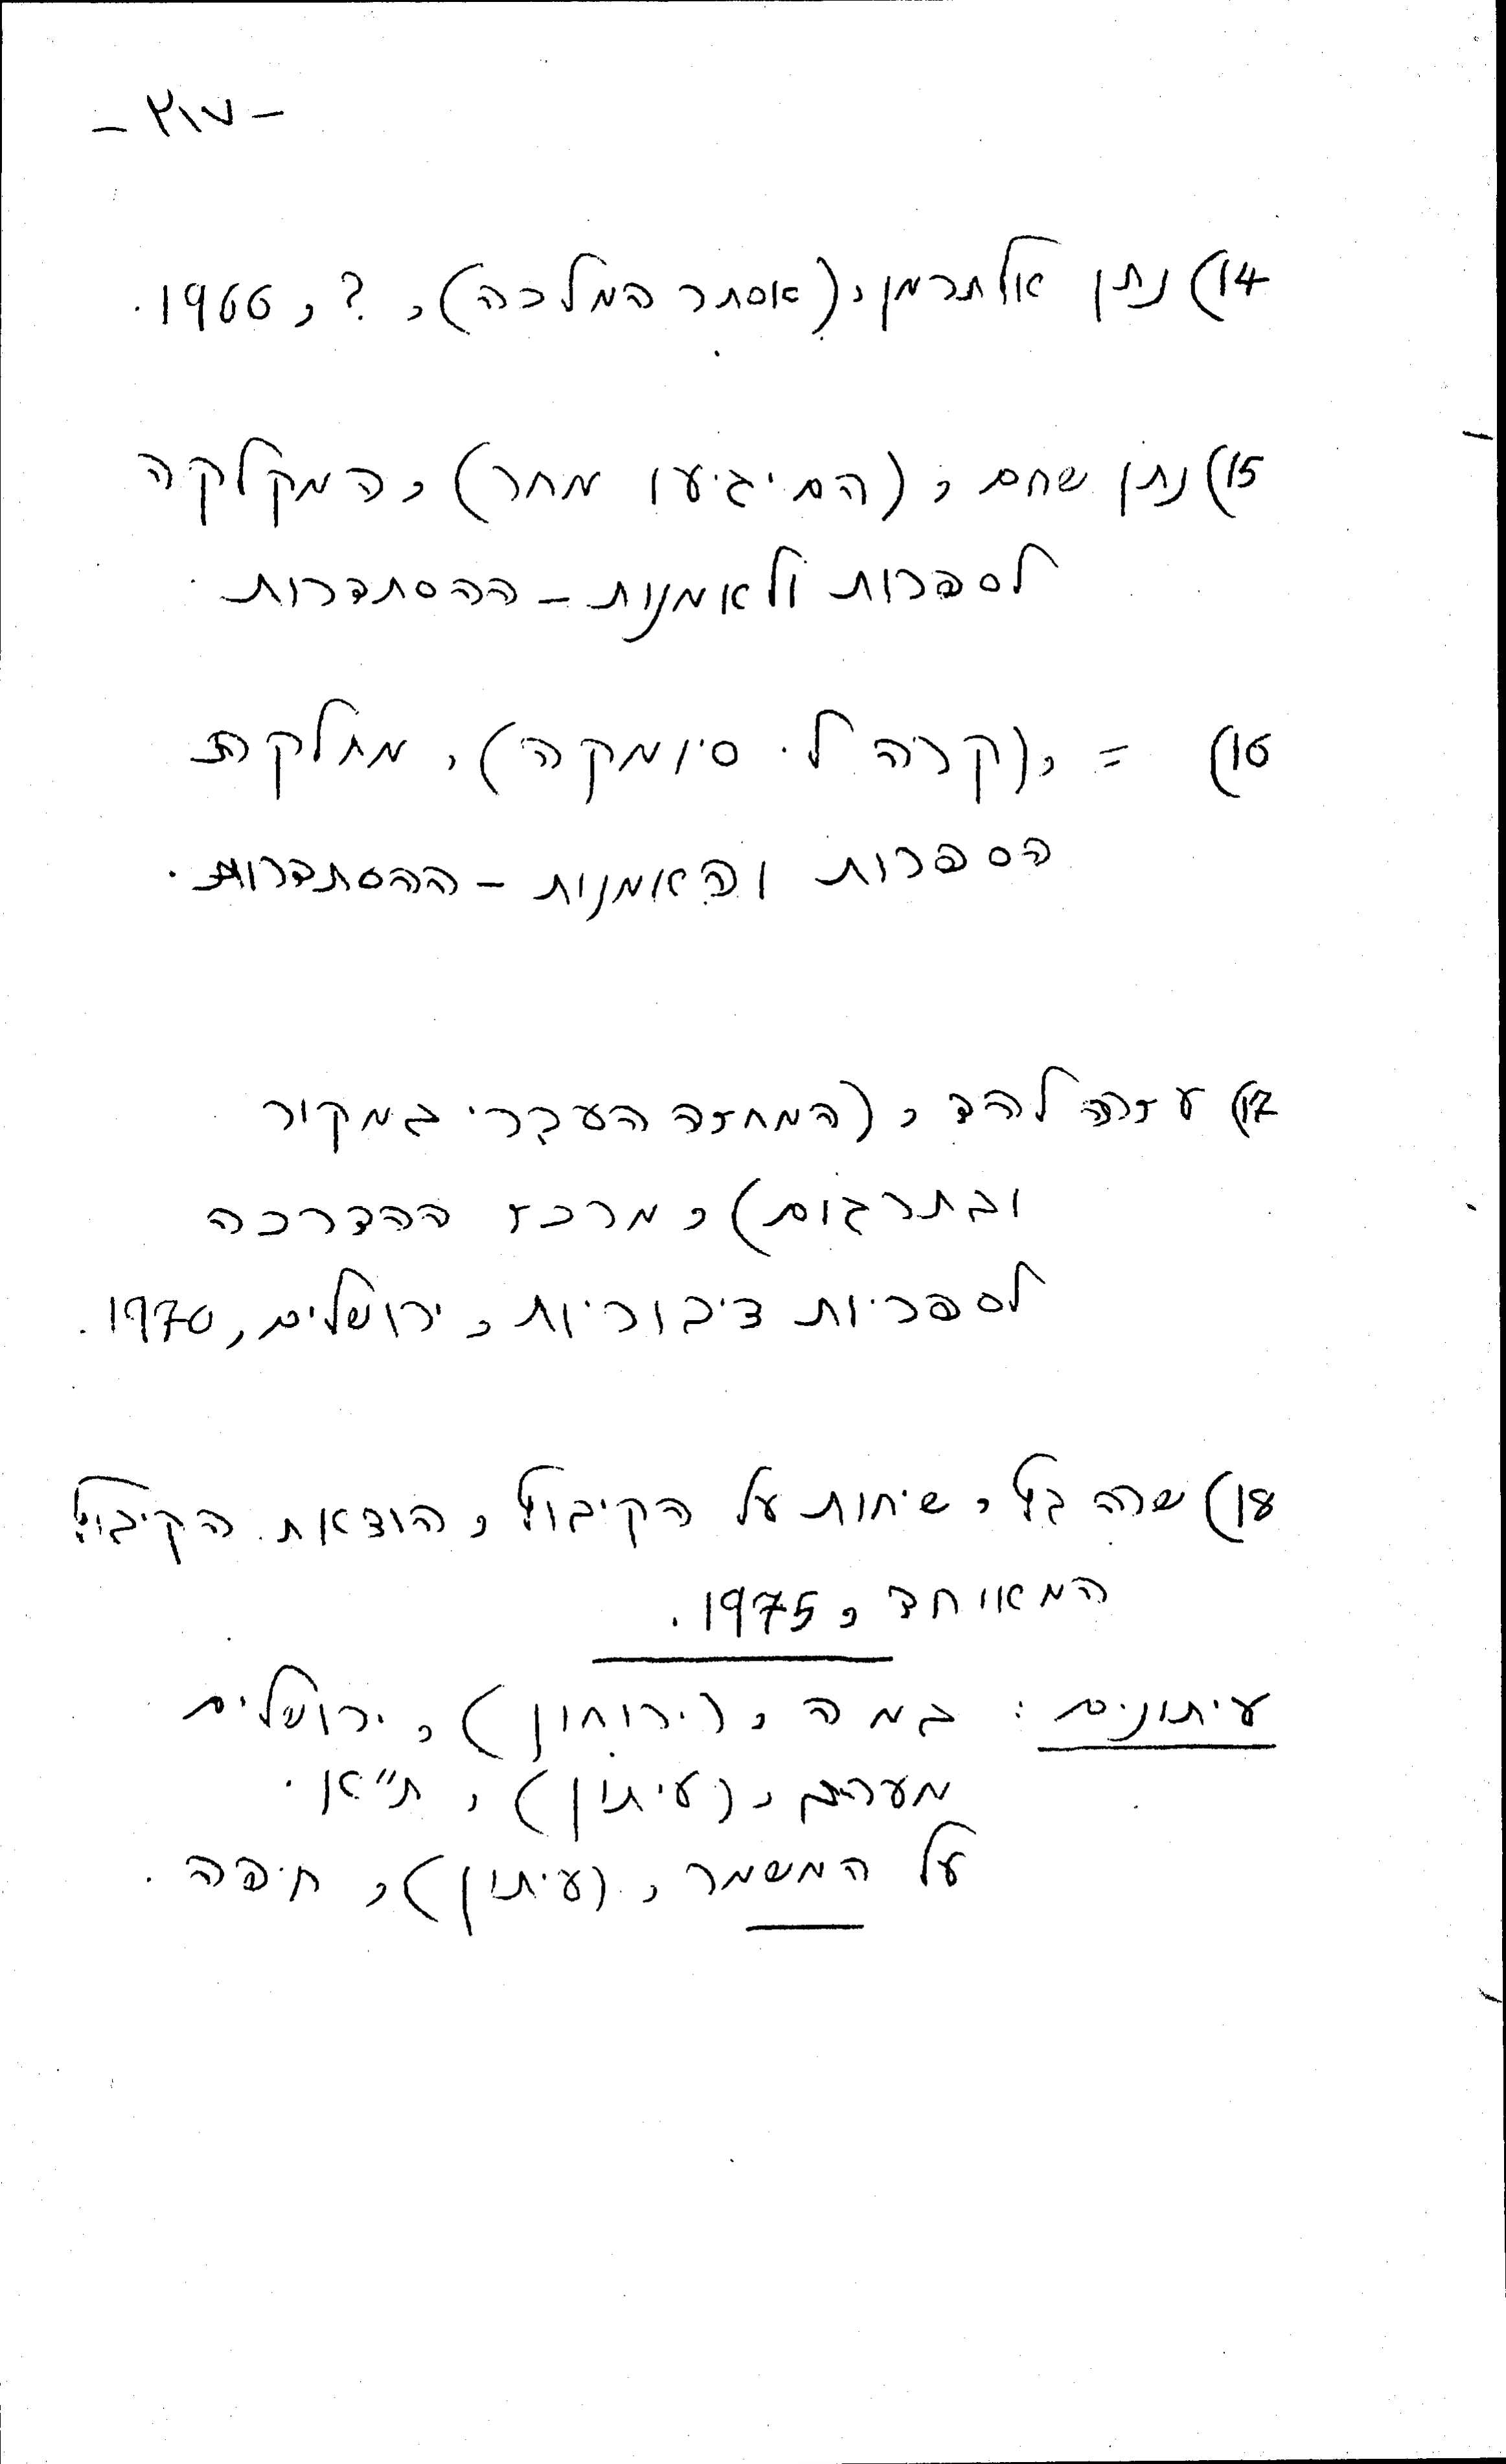 - ٢١٧ -
14) נתן אלתרמן, (אסתר המלכה), ?, 1966.
15) נתן שחם, (הם יגיעו מחר), המקלקה
לספרות ולאמנות - ההסתדרות.
16) = , (קרה ל. סיומקה), מחלקת
הספרות והאמנות - ההסתדרות.
17) עזרה להד, (המחזה העברי במקור
ובתרגום), מרכז ההדרכה
לספריות ציבוריות, ירושלים, 1970.
18) שרה בץ, שיחות על הקיבוץ, הוצאת הקיבוץ
המאוחד, 1975.
עיתונים: במה, (ירוחון), ירושלים
מעריב, (עיתון), ת"א.
על המשמר, (עיתון), חיפה.